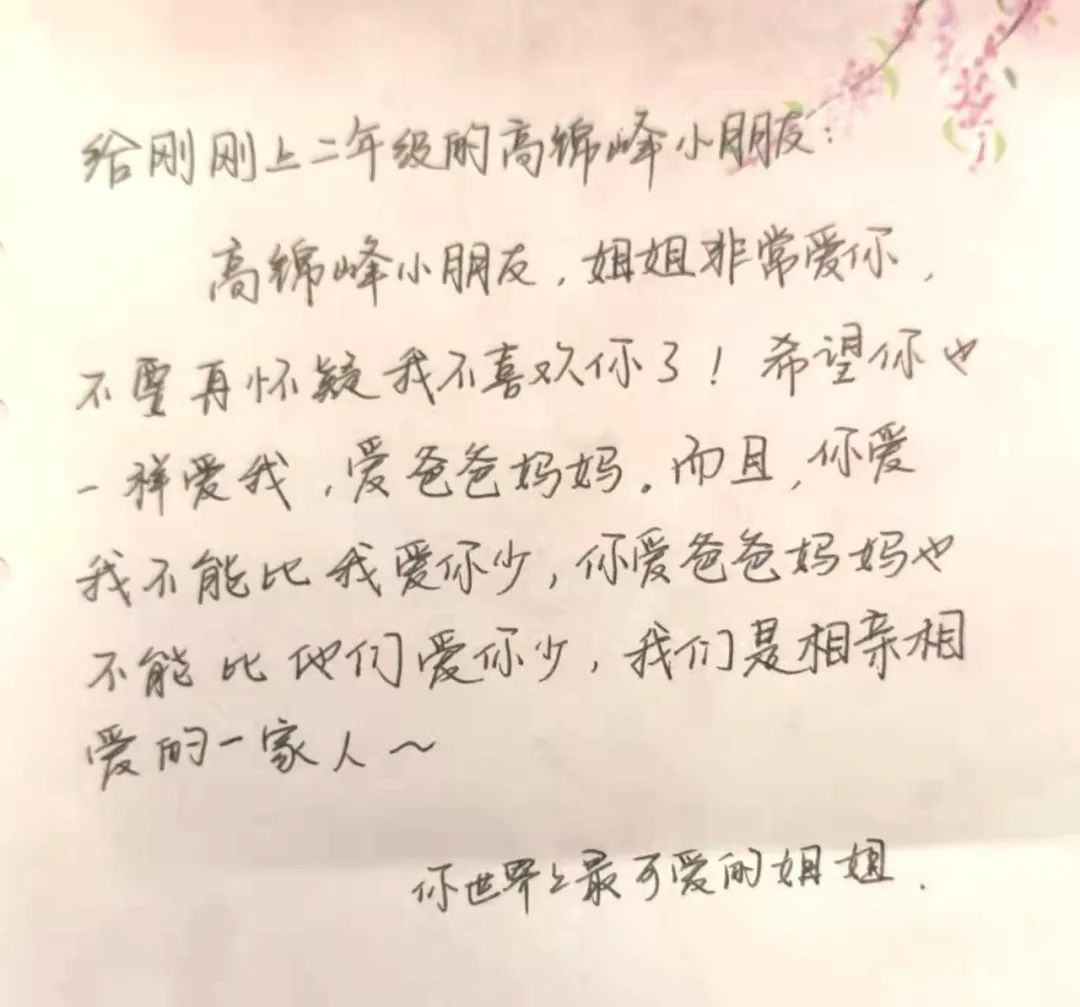 给刚刚上二年级的高锦峰小朋友：
高锦峰小朋友，姐姐非常爱你，
不要再怀疑我不喜欢你了！希望你也
一样爱我，爱爸爸妈妈。而且，你爱
我不能比我爱你少，你爱爸爸妈妈也
不能比他们爱你少，我们是相亲相
爱的一家人～
你世界上最可爱的姐姐.